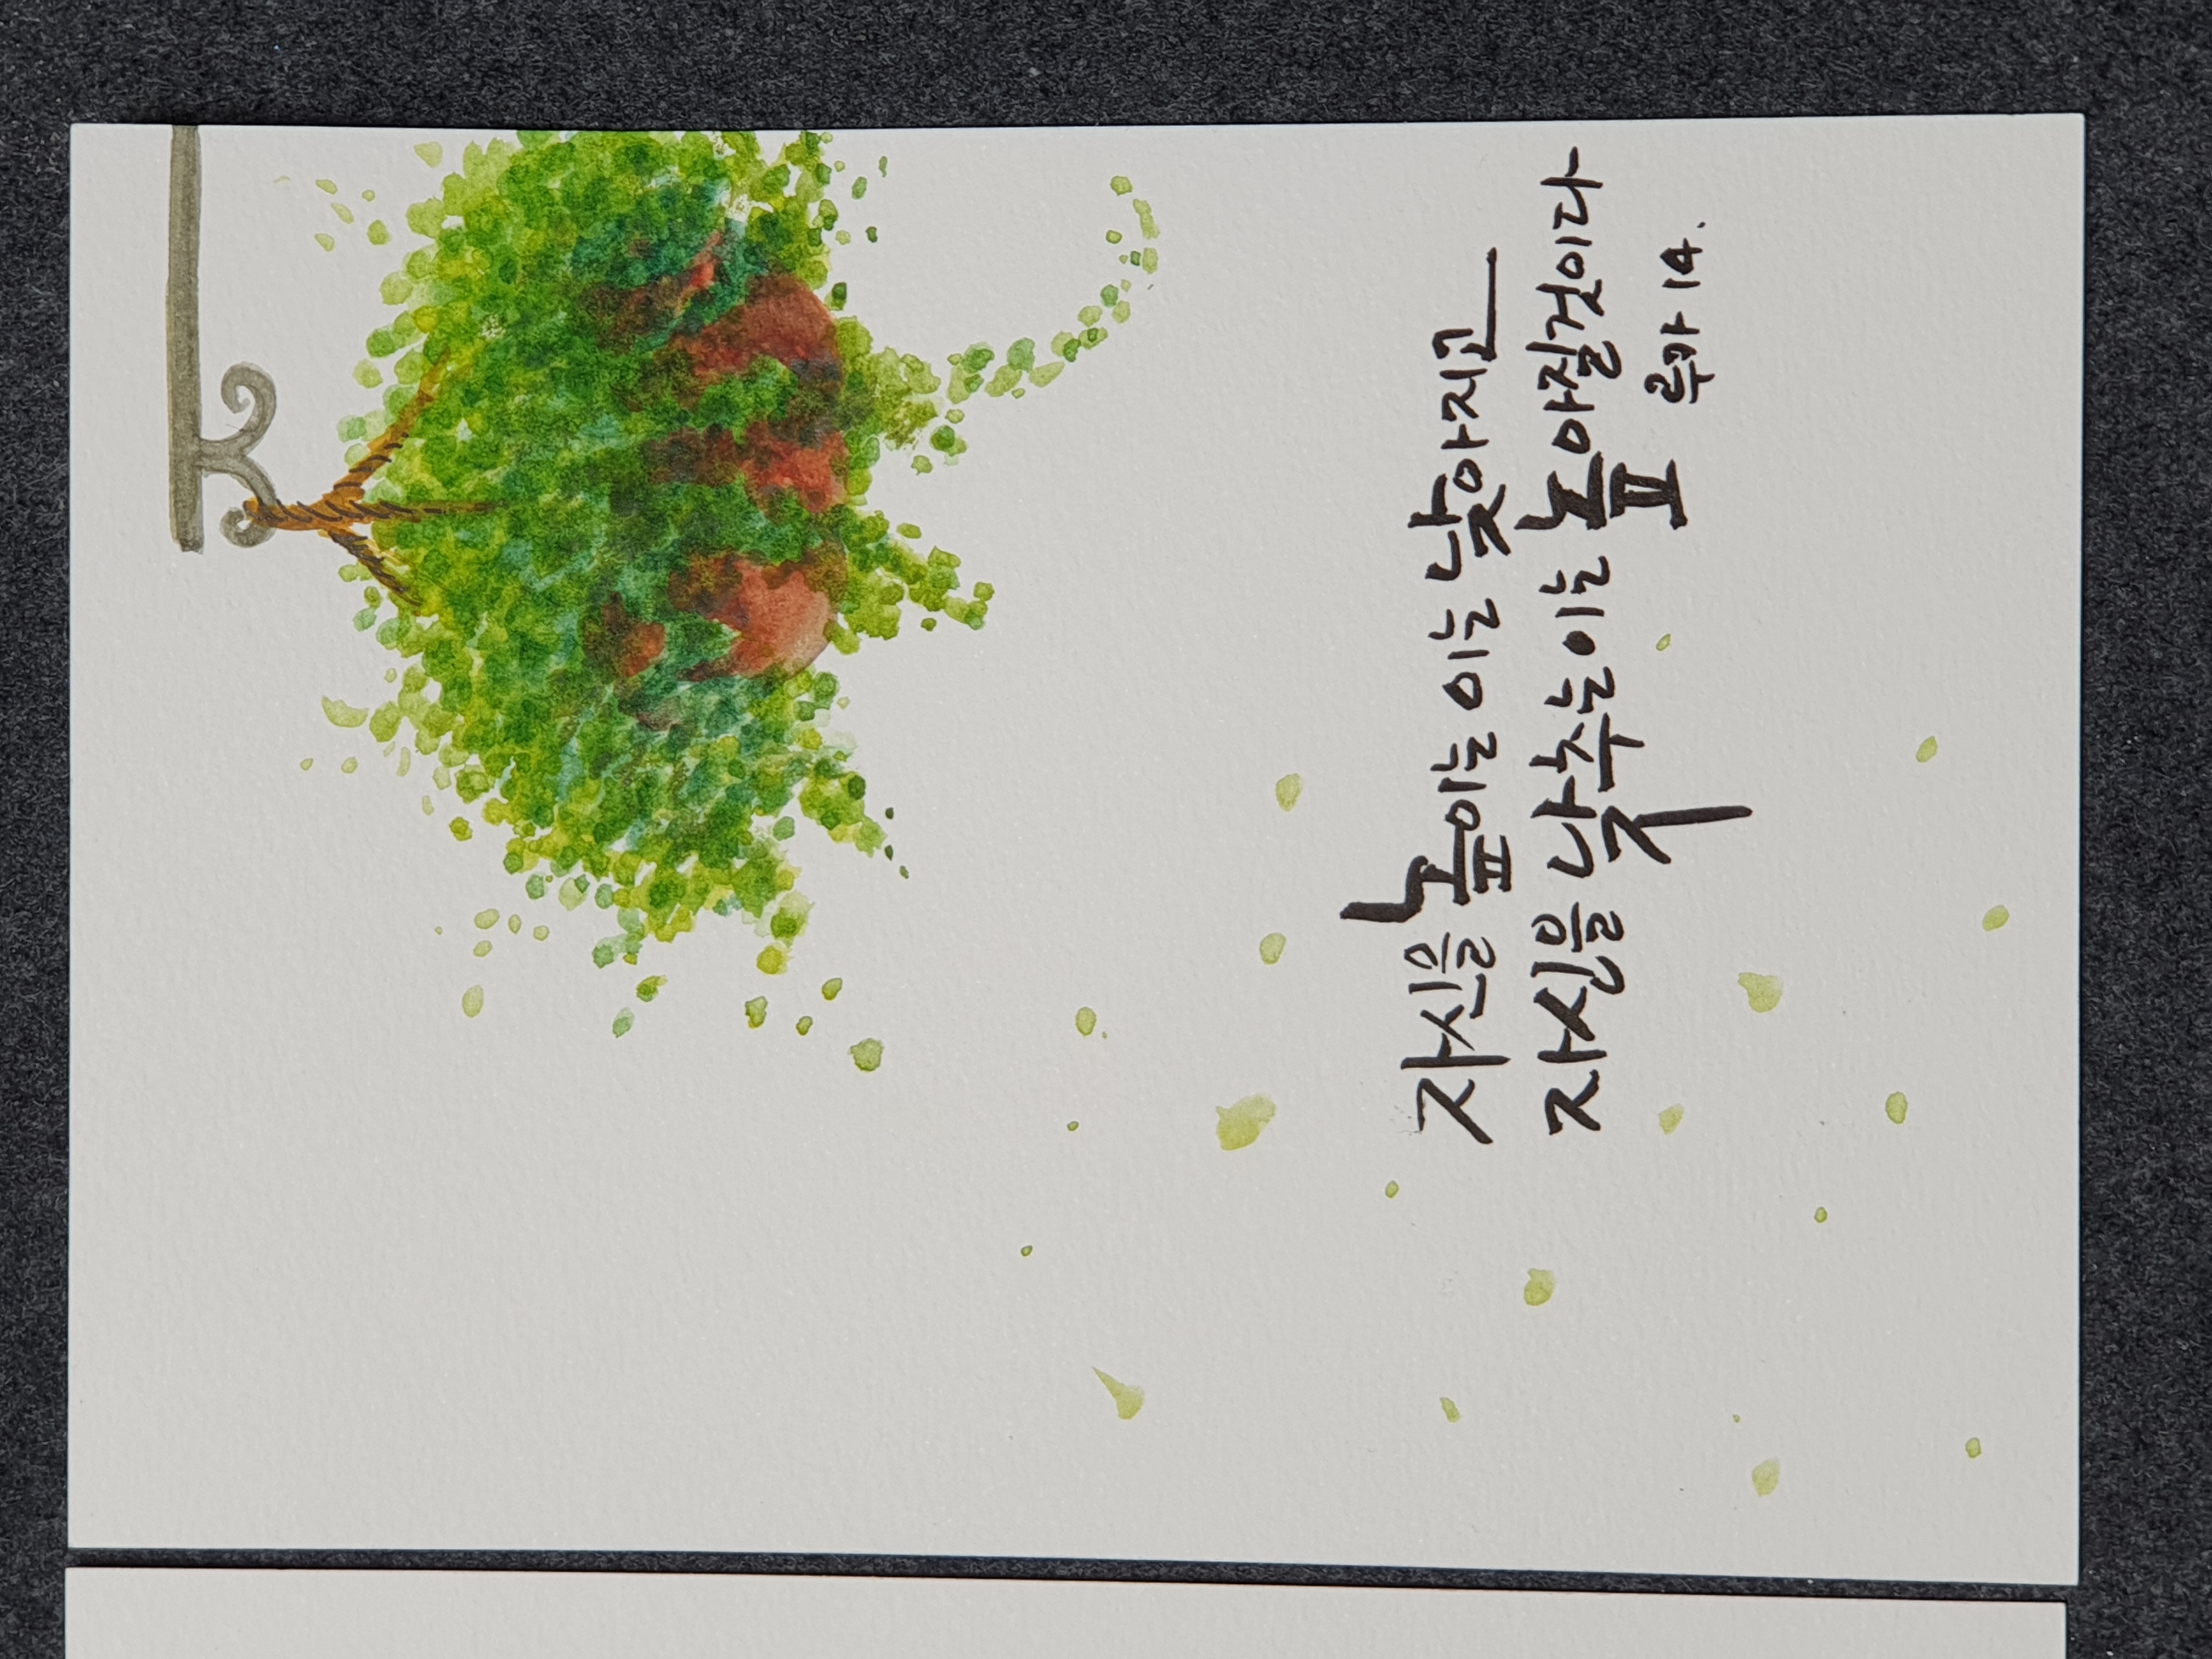 자신을 높이는 이는 낮아지고
자신을 낮추는 이는 높아질것이다
루카 14.